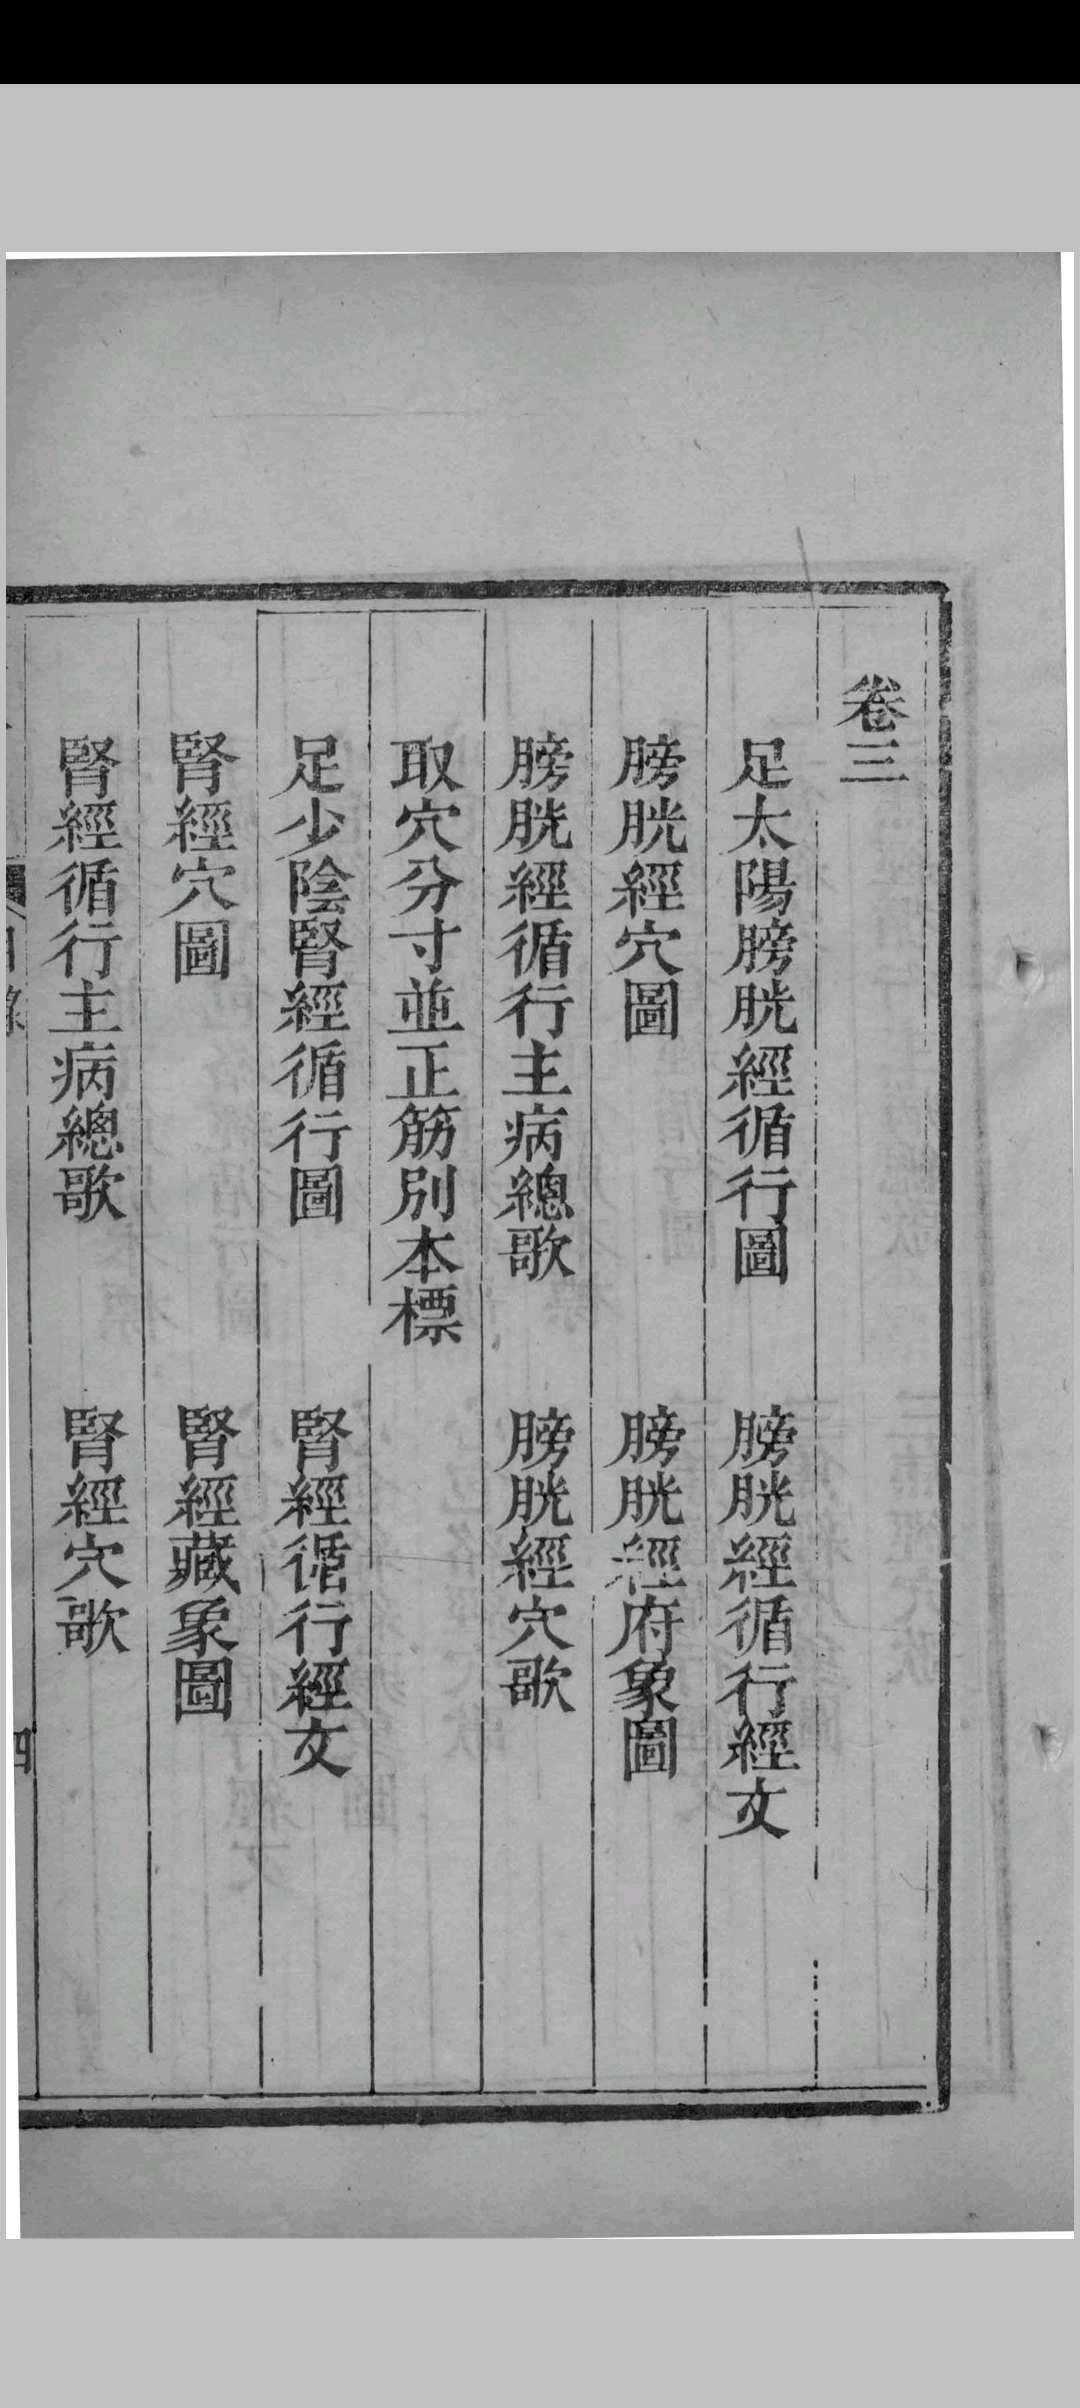 卷三
足太陽膀胱經循行圖 膀胱經循行經文
膀胱經穴圖 膀胱經府象圖
膀胱經循行主病總歌 膀胱經穴歌
取穴分寸並正筋別本標
足少陰腎經循行圖 腎經循行經文
腎經穴圖 腎經藏象圖
腎經循行主病總歌 腎經穴歌
目錄 四